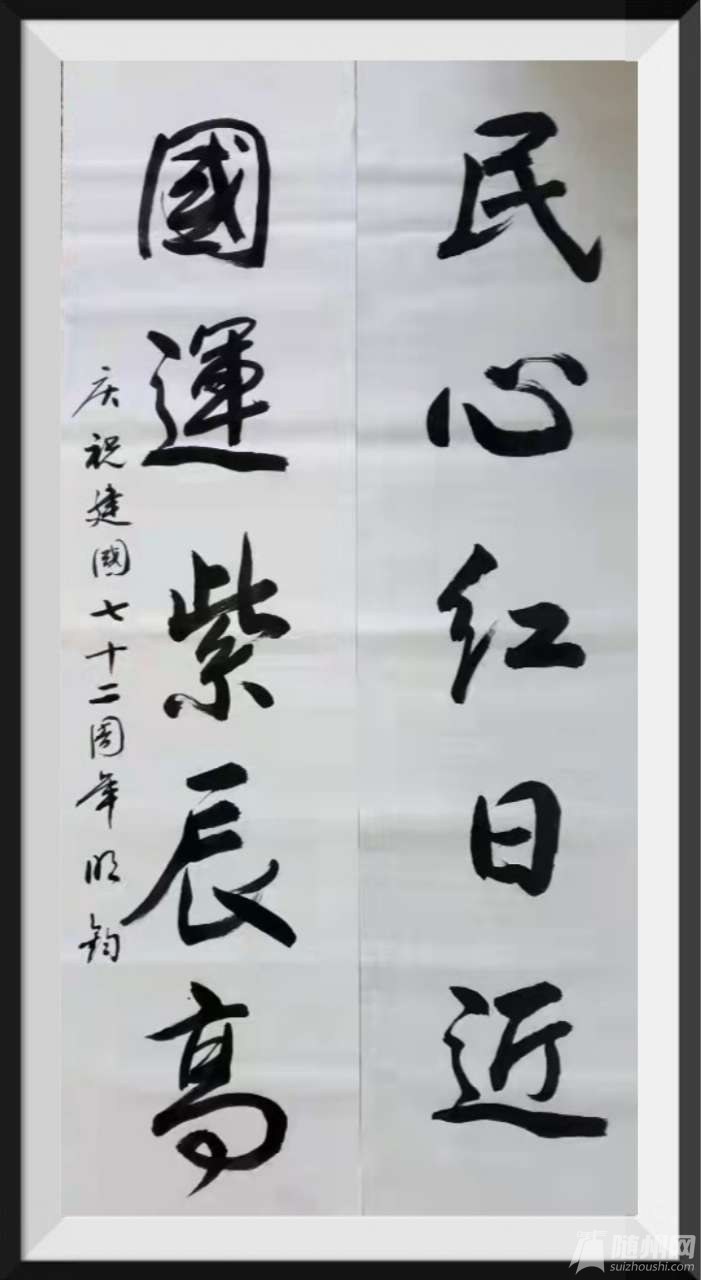 民心红日近
國運紫辰高
庆祝建國七十二周年明鈞
随州网
suizhoushi.com